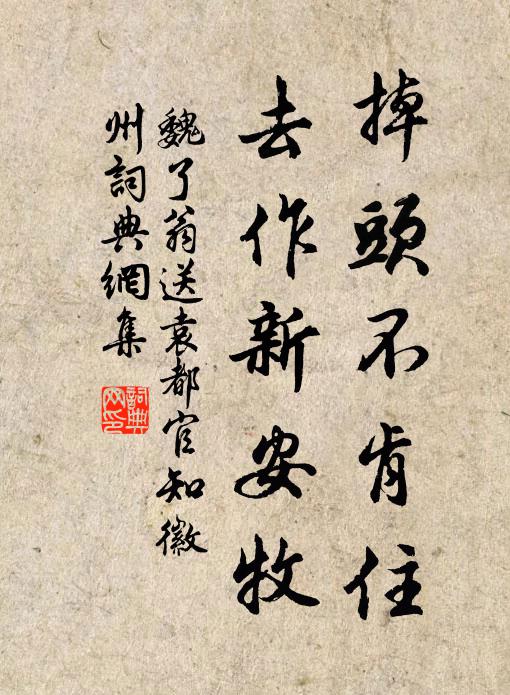 掉頭不肯住
去作新安牧
魏了翁送袁都官知徽
州詞典網集
詞典
网印